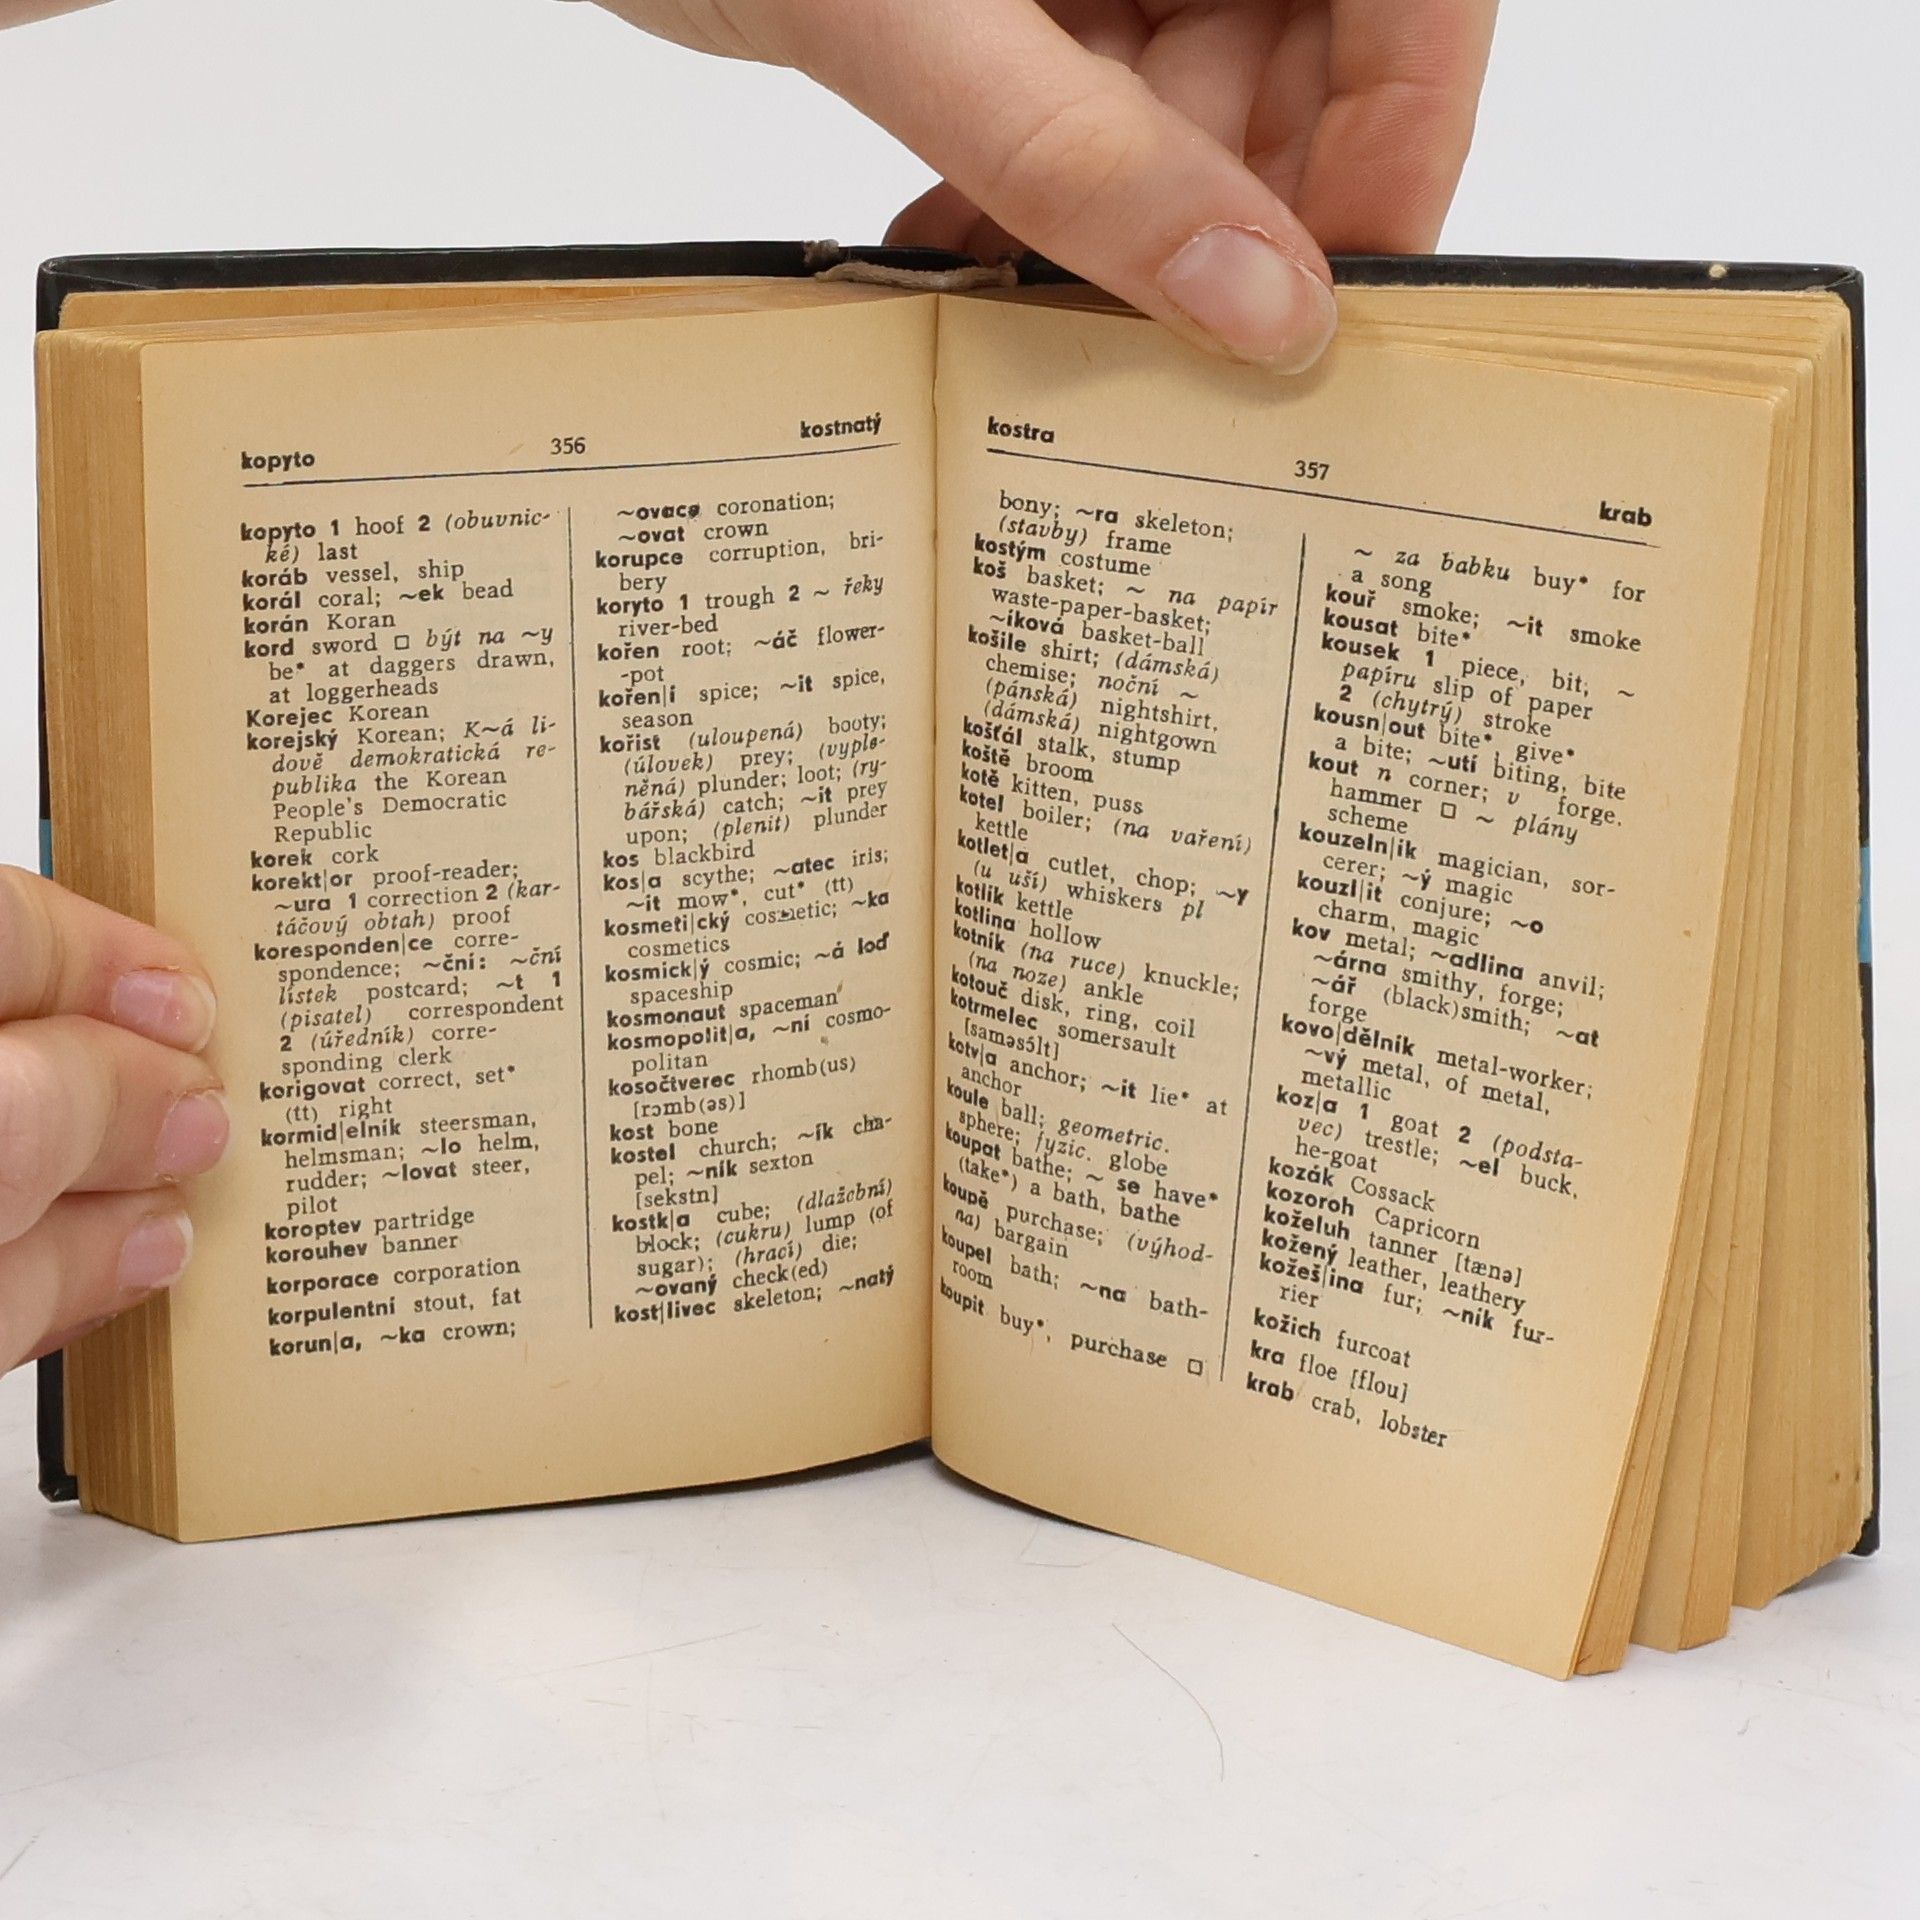 kopyto 356 kostnatý
kopyto 1 hoof 2 (obuvnic-
ké) last
koráb vessel, ship
korál coral; ~ek bead
korán Koran
kord sword □ být na ~y
be* at daggers drawn,
at loggerheads
Korejec Korean
korejský Korean; K~á li-
dově demokratická re-
publika the Korean
People's Democratic
Republic
korek cork
korekt|or proof-reader;
~ura 1 correction 2 (kar-
táčový obtah) proof
koresponden|ce corre-
spondence; ~ční: ~ční
lístek postcard; ~t 1
(pisatel) correspondent
2 (úředník) corre-
sponding clerk
korigovat correct, set*
(tt) right
kormid|elník steersman,
helmsman; ~lo helm,
rudder; ~lovat steer,
pilot
koroptev partridge
korouhev banner
korporace corporation
korpulentní stout, fat
korun|a, ~ka crown;
~ovace coronation;
~ovat crown
korupce corruption, bri-
bery
koryto 1 trough 2 ~ řeky
river-bed
kořen root; ~áč flower-
-pot
kořen|í spice; ~it spice,
season
kořist (uloupená) booty;
(úlovek) prey; (vyple-
něná) plunder; loot; (ry-
bářská) catch; ~it prey
upon; (plenit) plunder
kos blackbird
kos|a scythe; ~atec iris;
~it mow*, cut* (tt)
kosmeti|cký cosmetic; ~ka
cosmetics
kosmick|ý cosmic; ~á loď
spaceship
kosmonaut spaceman
kosmopolit|a, ~ní cosmo-
politan
kosočtverec rhomb(us)
[romb(əs)]
kost bone
kostel church; ~ík cha-
pel; ~ník sexton
[sekstn]
kostk|a cube; (dlažební)
block; (cukru) lump (of
sugar); (hrací) die;
~ovaný check(ed)
kost|livec skeleton; ~natý
kostra 357 krab
bony; ~ra skeleton;
(stavby) frame
kostým costume
koš basket; ~ na papír
waste-paper-basket;
~íková basket-ball
košile shirt; (dámská)
chemise; noční ~
(pánská) nightshirt,
(dámská) nightgown
košťál stalk, stump
koště broom
kotě kitten, puss
kotel boiler; (na vaření)
kettle
kotlet|a cutlet, chop; ~y
(u uší) whiskers pl
kotlík kettle
kotlina hollow
kotník (na ruce) knuckle;
(na noze) ankle
kotouč disk, ring, coil
kotrmelec somersault
[saməsólt]
kotv|a anchor; ~it lie* at
anchor
koule ball; geometric.
sphere; fyzic. globe
koupat bathe; ~ se have*
(take*) a bath, bathe
koupě purchase; (výhod-
na) bargain
koupel bath; ~na bath-
room
koupit buy*, purchase □
~ za babku buy* for
a song
kouř smoke; ~it smoke
kousat bite*
kousek 1 piece, bit; ~
papíru slip of paper
2 (chytrý) stroke
kousn|out bite*, give*
a bite; ~utí biting, bite
kout n corner; v forge,
hammer □ ~ plány
scheme
kouzeln|ík magician, sor-
cerer; ~ý magic
kouzl|it conjure; ~o
charm, magic
kov metal; ~adlina anvil;
~árna smithy, forge;
~ář (black)smith; ~at
forge
kovo|dělník metal-worker;
~vý metal, of metal,
metallic
koz|a 1 goat 2 (podsta-
vec) trestle; ~el buck,
he-goat
kozák Cossack
kozoroh Capricorn
koželuh tanner [tænə]
kožený leather, leathery
kožeš|ina fur; ~ník fur-
rier
kožich furcoat
kra floe [flou]
krab crab, lobster